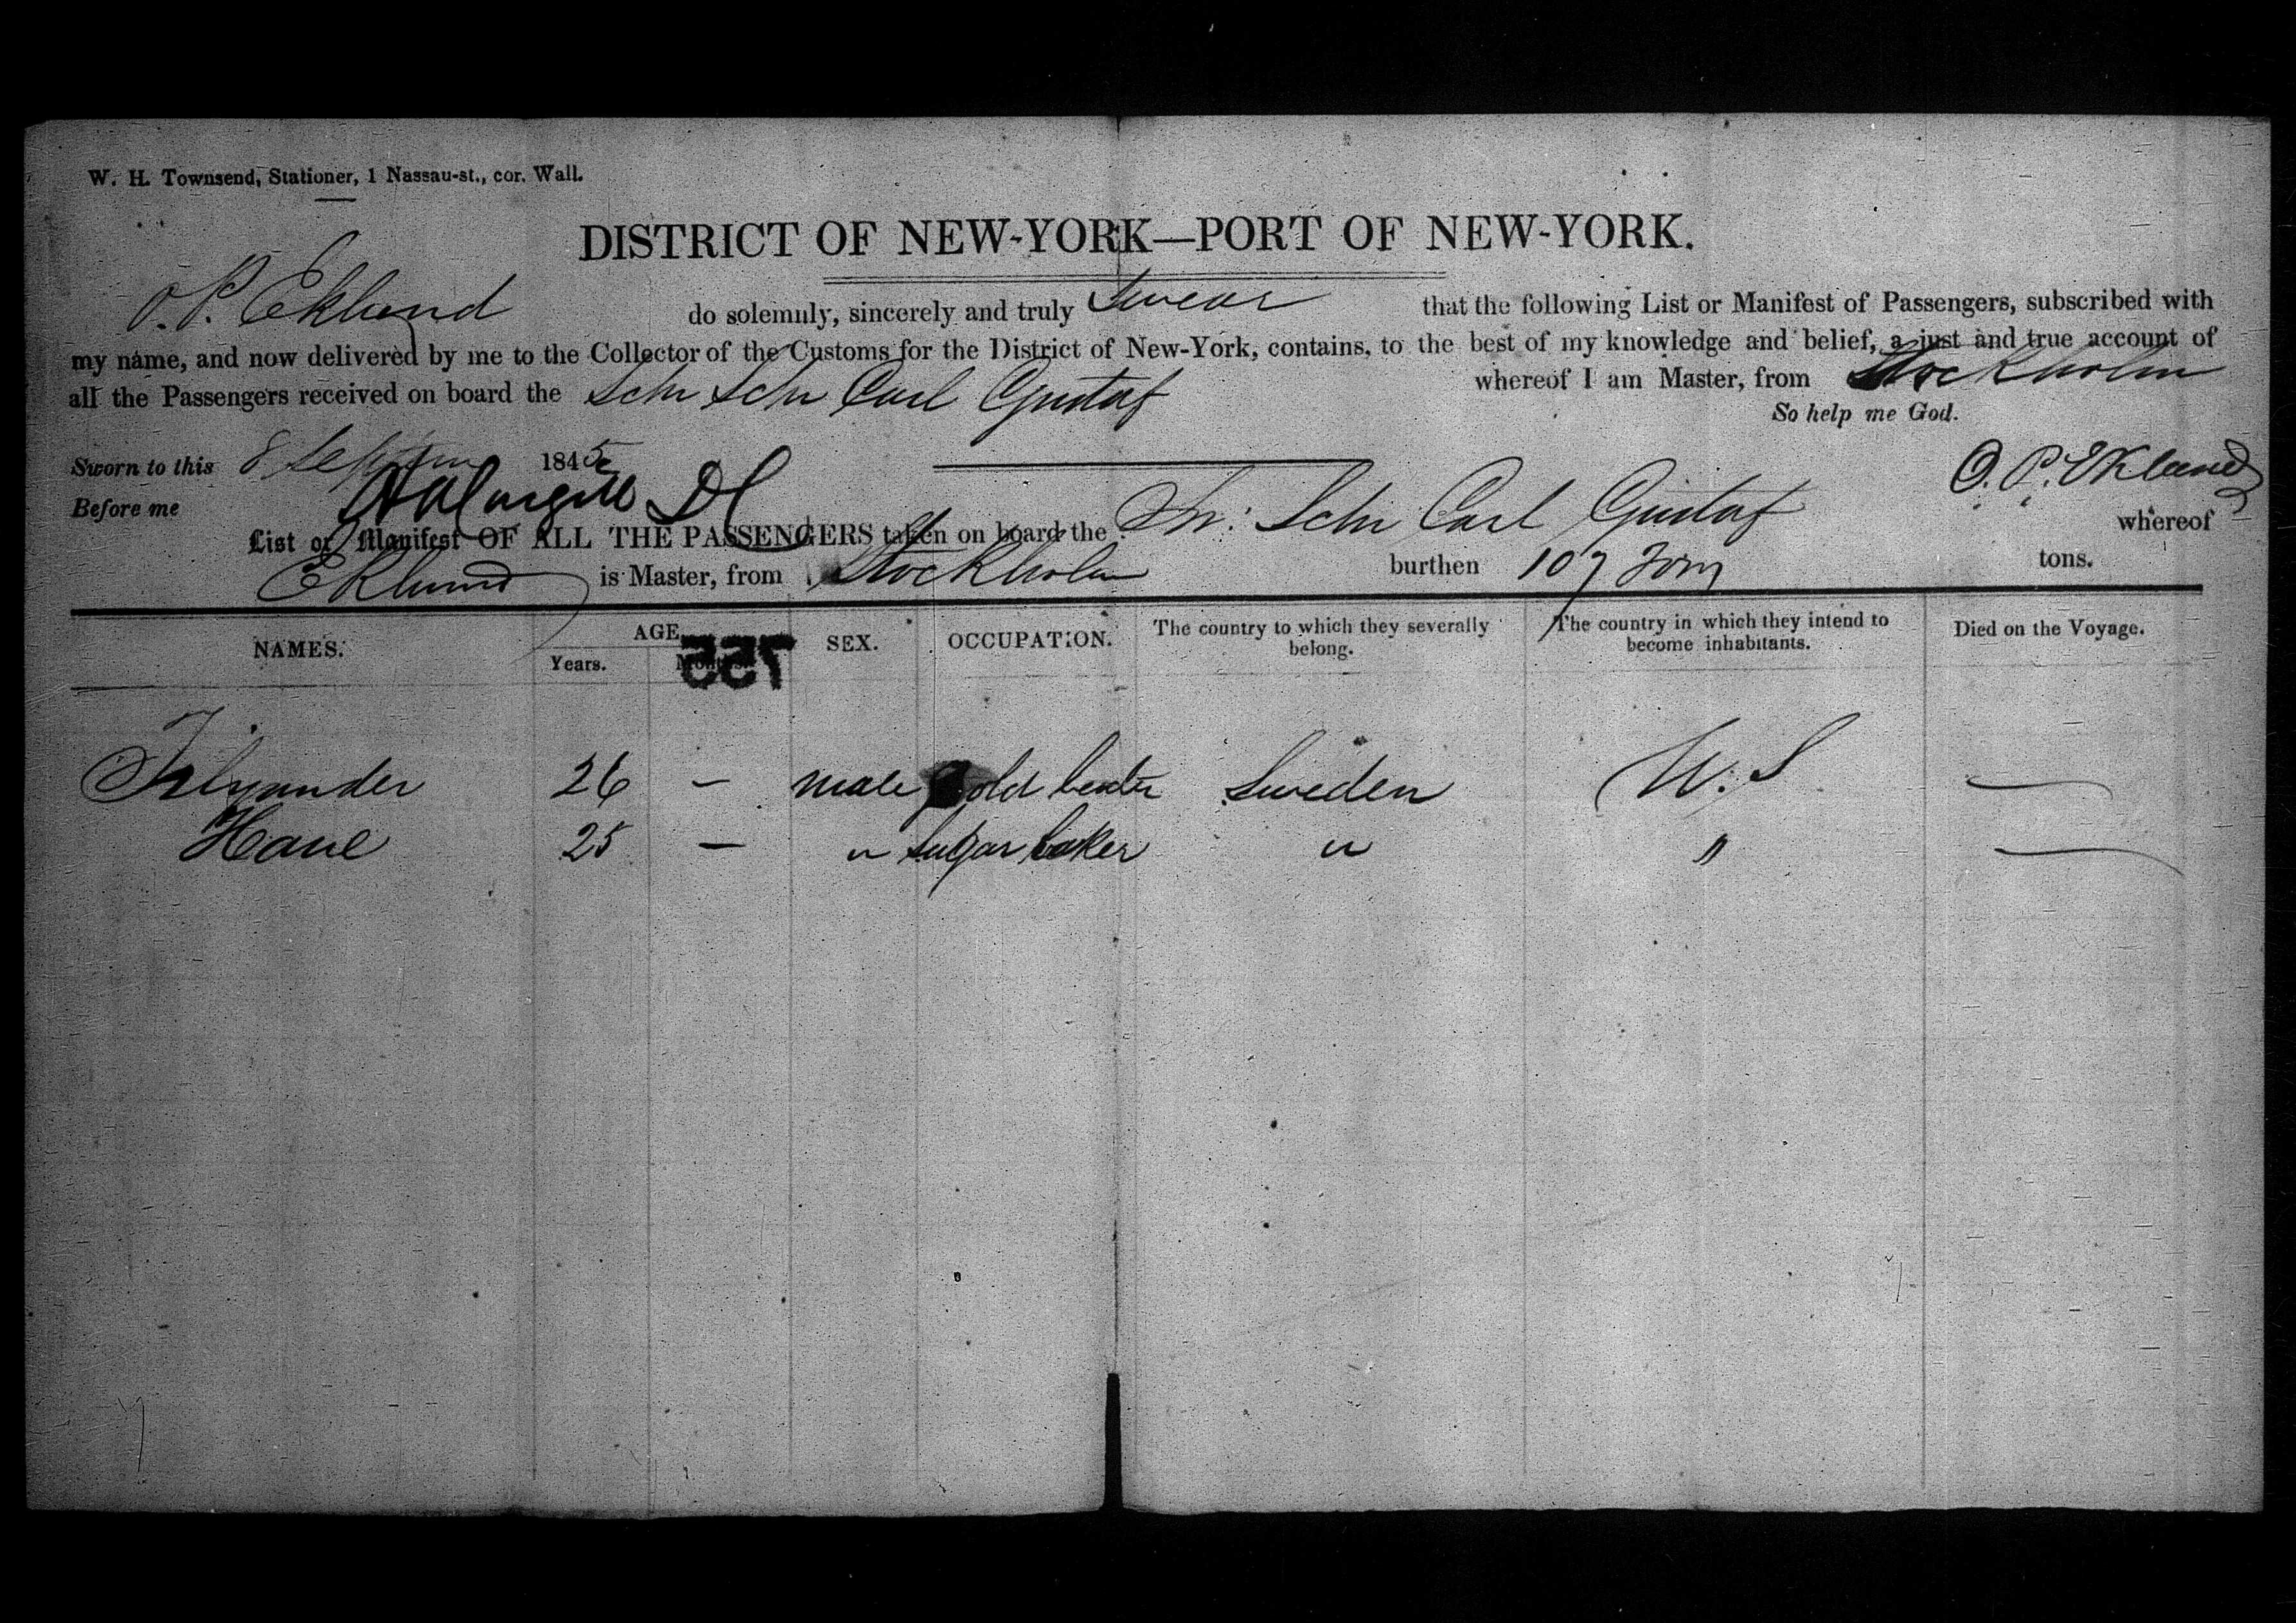 W. H. Townsend, Stationer, 1 Nassau-st., cor. Wall.
DISTRICT OF NEW-YORK—PORT OF NEW-YORK.
O. P. Eklund do solemnly, sincerely and truly Swear that the following List or Manifest of Passengers, subscribed with
my name, and now delivered by me to the Collector of the Customs for the District of New-York, contains, to the best of my knowledge and belief, a just and true account of
all the Passengers received on board the Schr Carl Gustaf whereof I am Master, from Stockholm
So help me God.
Sworn to this 8 Septem 1845
Before me O. P. Eklund
List or Manifest OF ALL THE PASSENGERS taken on board the Schr Carl Gustaf whereof
Eklund is Master, from Stockholm burthen 107 Tons tons.
NAMES. AGE. SEX. OCCUPATION. The country to which they severally belong. The country in which they intend to become inhabitants. Died on the Voyage.
Years. Months. 755
26 – male gold beater Sweden U. S —
25 – " Sugar baker " " —